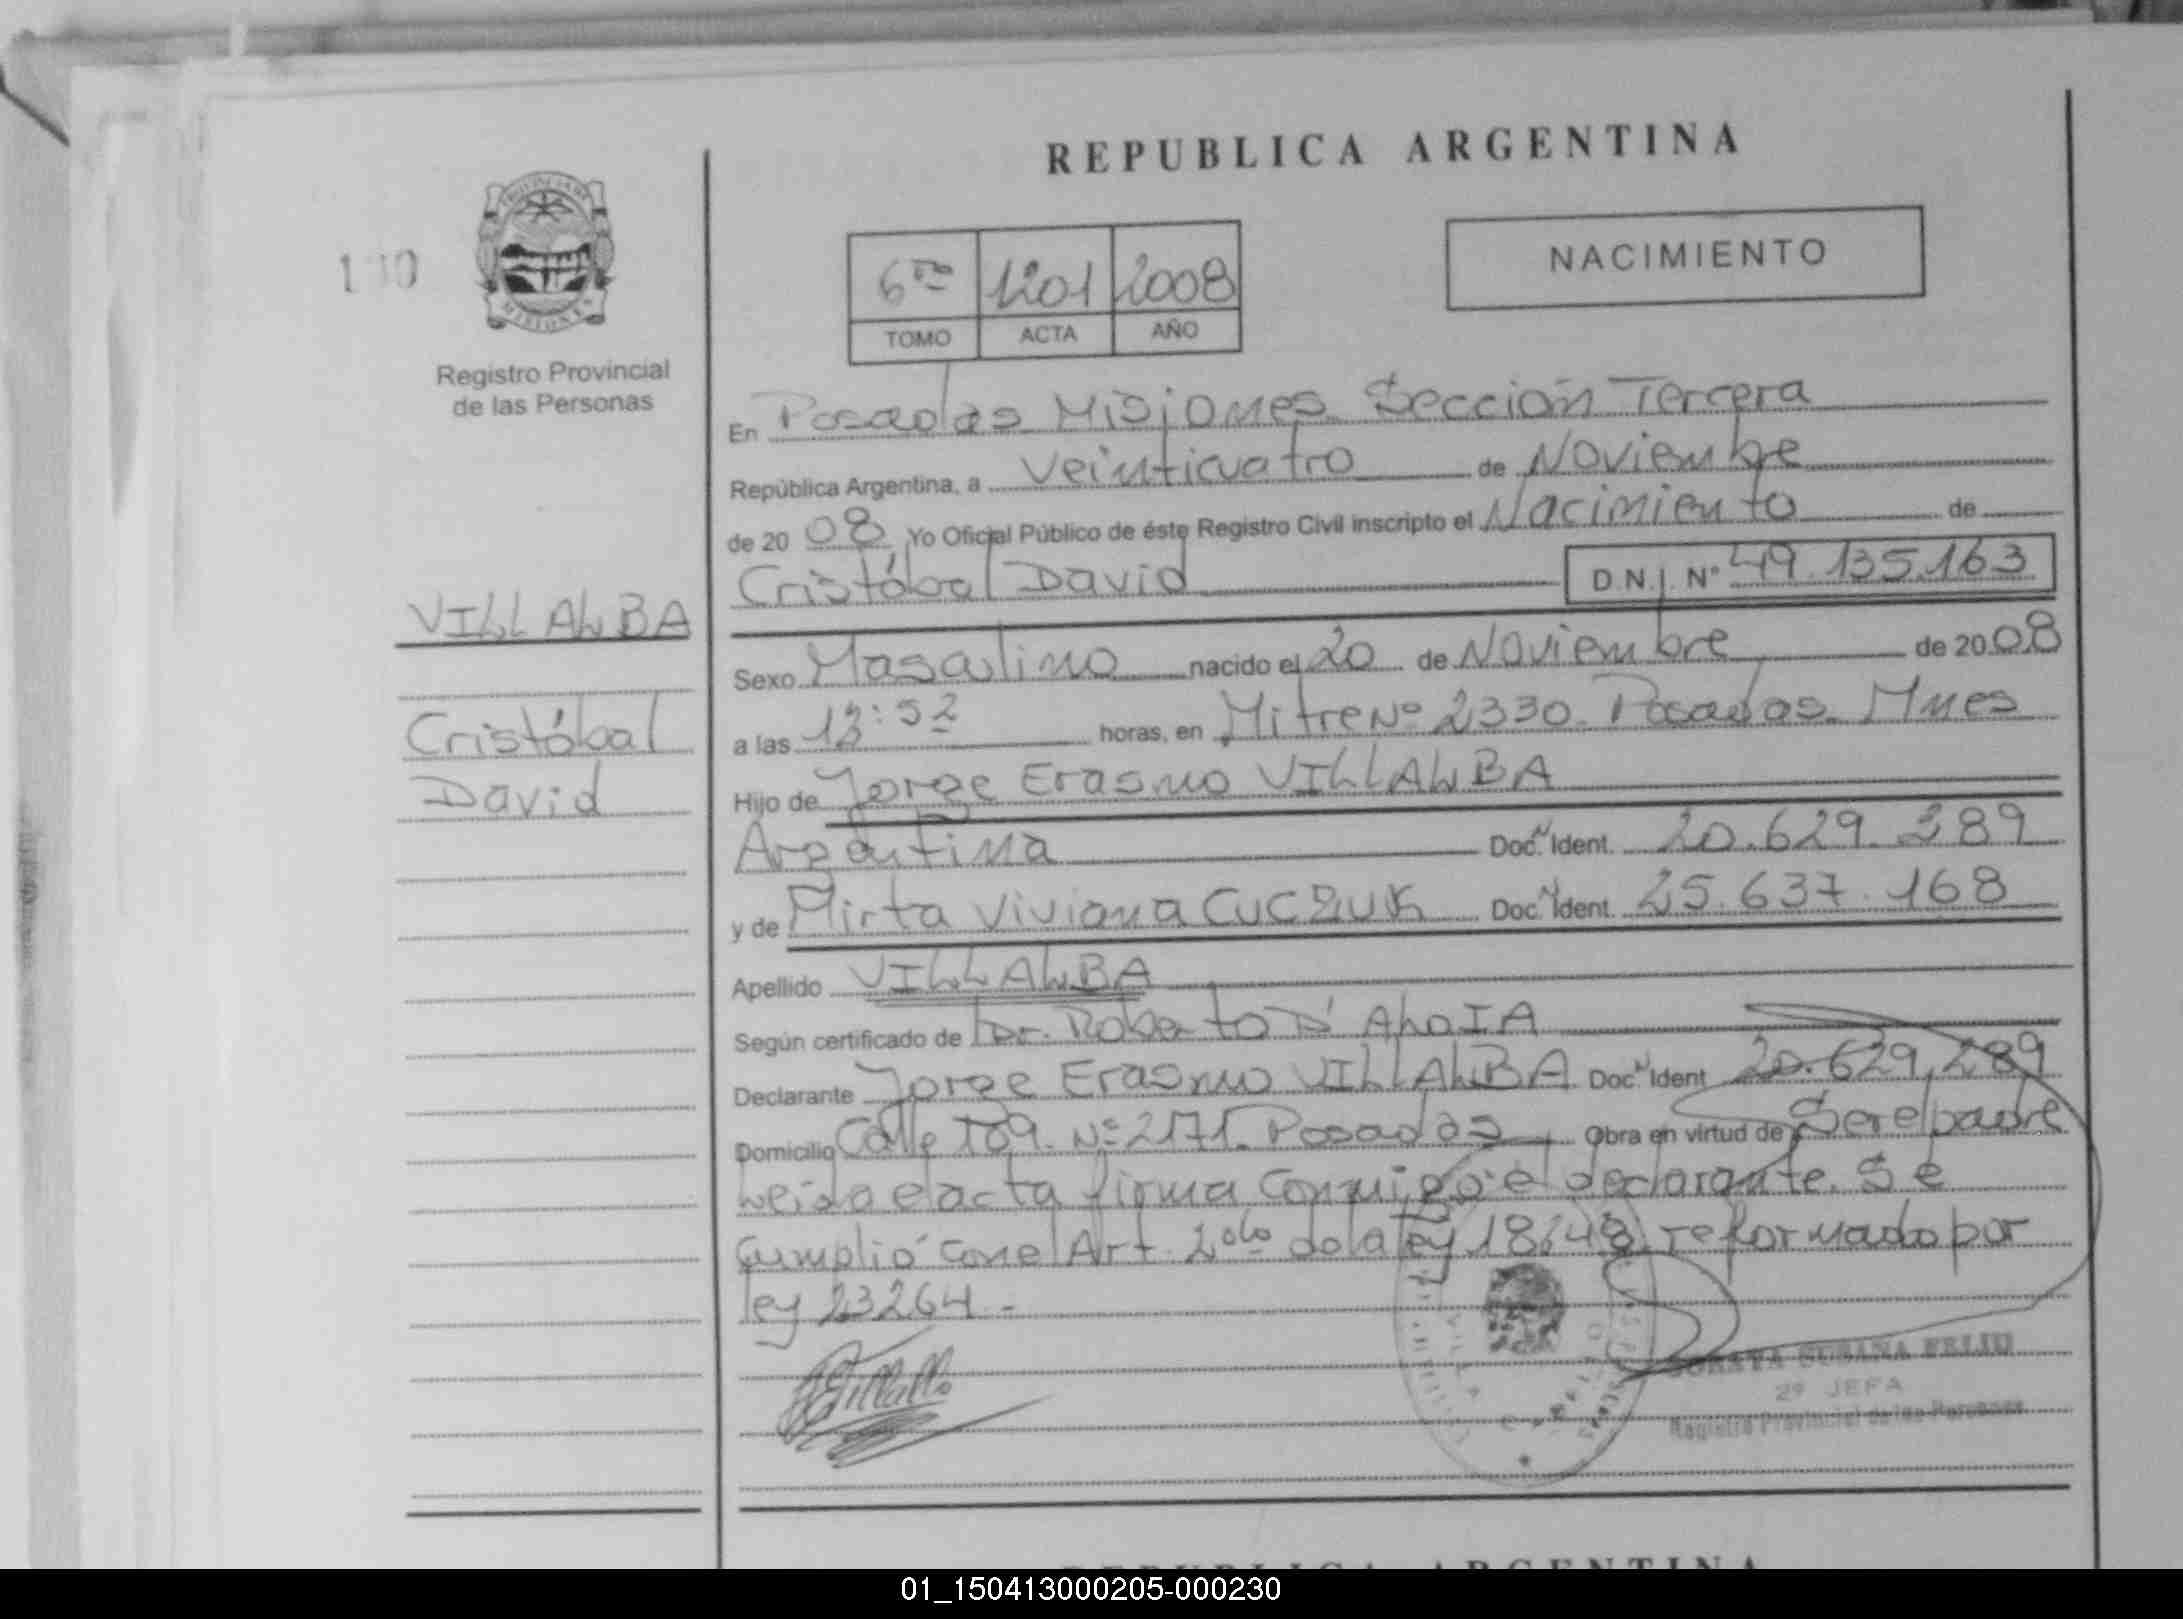 REPUBLICA ARGENTINA
NACIMIENTO
6to 1201 2008
TOMO ACTA AÑO
MISIONES
Registro Provincial
de las Personas
VILLALBA
Cristóbal
David
En Posadas Misiones Sección Tercera
República Argentina, a veinticuatro de Noviembre
de 2008 Yo Oficial Público de éste Registro Civil inscripto el Nacimiento de
Cristóbal David D.N.I. Nº 49.135.163
Sexo Masculino nacido el 20 de Noviembre de 2008
a las horas, en Mitre Nº 2330. Posadas. Mnes
Hijo de Jorge Erasmo VILLALBA
Argentina Doc. Ident. 20.629.289
y de Mirta Viviana CUCZUK Doc. Ident. 25.637.168
Apellido VILLALBA
Según certificado de Dr. Roberto D'ALOIA
Declarante Jorge Erasmo VILLALBA Doc. Ident 20.629.289
Domicilio Calle 109. Nº 2171. Posadas Obra en virtud de Ser el padre
Leida el acta firma conmigo el declarante. Se
cumplió con el Art. 2do de la ley 18.248 reformado por
ley 23264.-
SUSANA FELIU
2º JEFA
Registro Provincial de las Personas
REPUBLICA ARGENTINA
01_150413000205-000230